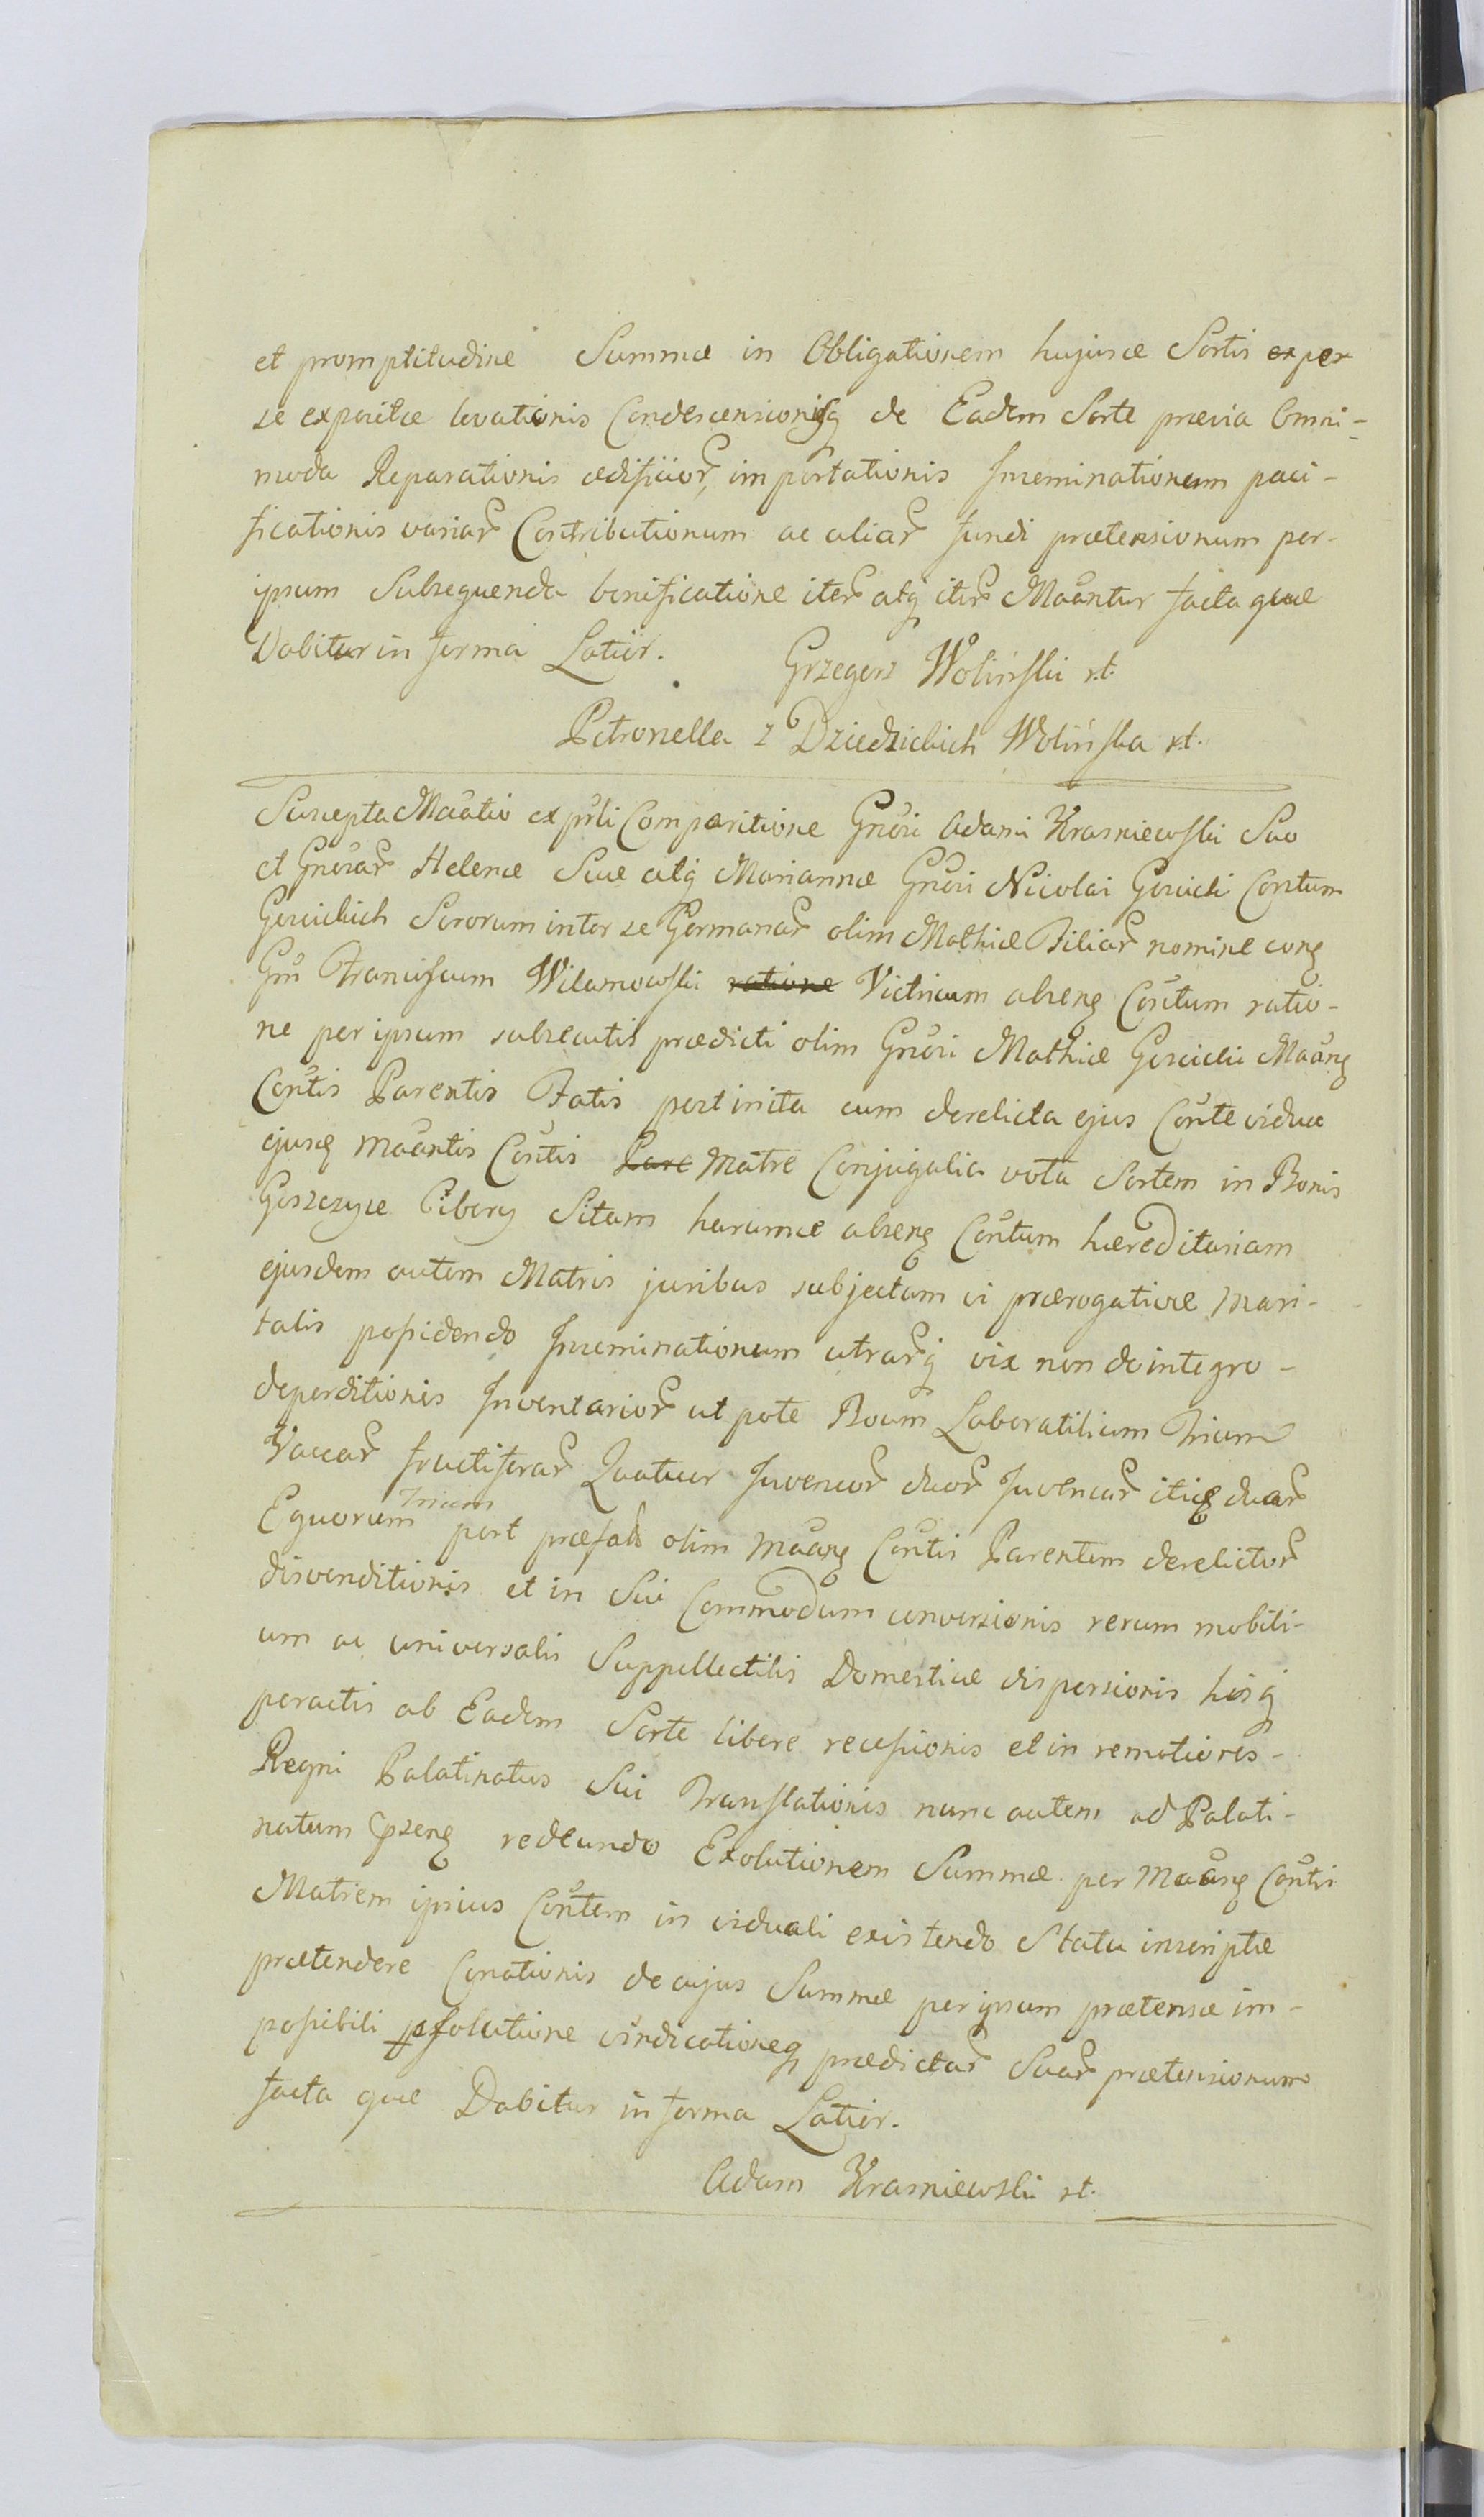 et promptitudine Summæ in Obligationem hujusce Sortis ex per
se expositæ levationis Condescensionisq̃ de Eadem Sorte prævia Omni-
moda Reparationis ædificior̃, importationis Inseminationum paci-
ficationis variar̃ Contributionum ac aliar̃ fundi prætensionum per-
ipsum Subsequenda bonificatione iter̃ atq̃ iter̃ Maãntur facta quæ
Dabitur in forma Latiör.
Grzegorz Woliński rt.
Petronella z Dziedzickich Wolińska rt.
Suscepta Mãatio ex pr̃li Comparitione Gnõri Adami Krasniewski Suo
et Gnõrar̃ Helenæ Suæ atq̃ Mariannæ Gnõri Nicolai Gościcki Cõrtum
Gościckich Sororum inter se Germanar̃ olim Mathiæ Filiar̃ nomine cong
Gñ Franciscum Wilamowski ratione Victricum absenq̃ Cõrtum ratio-
ne per ipsum subsecutis prædicti olim Gnõri Mathiæ Gościcki Mãanq̃
Cõrtis Parentis Fatis post inita cum derelicta ejus Cõrte vidua
ejusq̃ Mãantis Cõrtis Pare Matre Conjugalia vota Sortem in Bonis
Goszczyce Pibery Sitam harumce absenq̃ Cõrtum hæreditariam
ejusdem autem Matris juribus subjectam vi prærogativæ Mari-
talis possidendo Inseminationum utrarq̃ vix non de integro-
deperditionis Inventarior̃ ut pote Boum Laboratilium Trium
Vaccar̃ fructiferar̃ Quatuor Juvencor̃ duor̃ Juvencar̃ itidẽ duar̃
Equorum Trium post præfati olim Mãanq̃ Cõrtis Parentem derelictor̃
disvenditionis et in Sui Commodum conversionis rerum mobili-
um ac universalis Suppellectilis Domesticæ dispersionis hisq̃
peractis ab Eadem Sorte libere recessionis et in remotiores-
Regni Palatinatus Sui Translationis nunc autem ad Palati-
natum p̃rsenq̃ redeundo Exolutionem Summæ per Mãanq̃ Cõrtis
Matrem ipsius Cõrtem in viduali existendo Statu inscriptæ
prætendere Conationis de cujus Summæ per ipsum prætensæ im-
possibili p̃solutione vindicationeq̃ prædictar̃ Suar̃ prætensionum
facta quæ Dabitur in forma Latiör.
Adam Krasniewski rt.